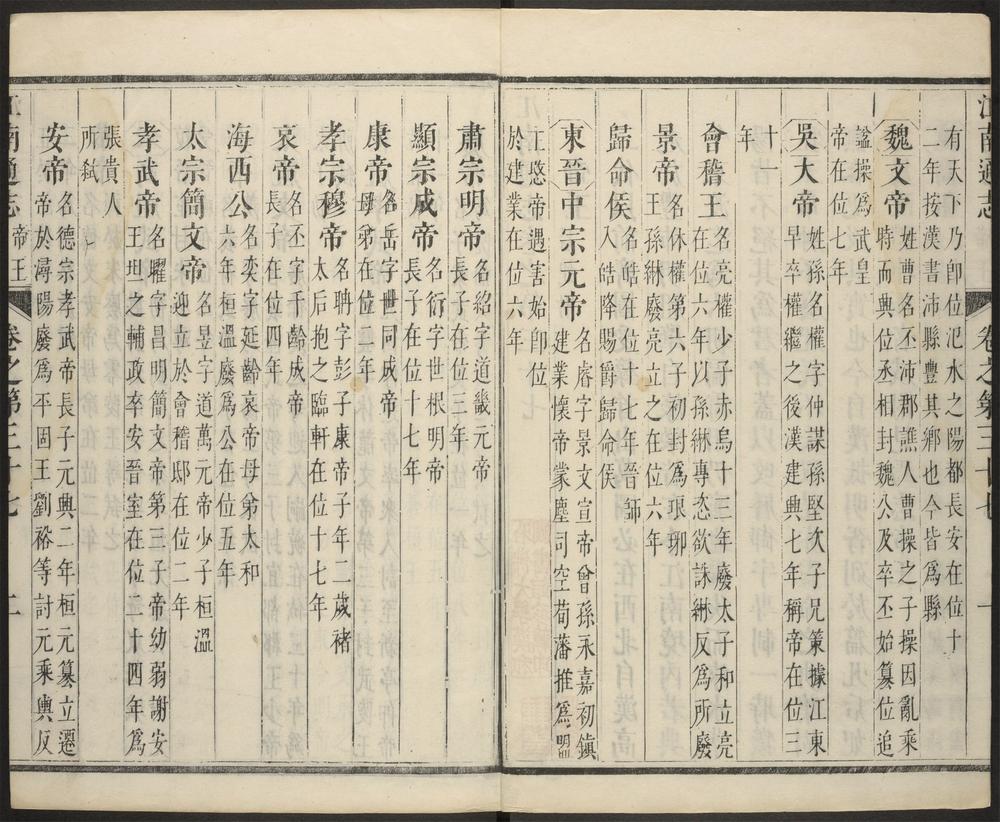 江南通志
卷之第三十七
一
有天下乃卽位汜水之陽都長安在位十
二年按漢書沛縣豐其鄉也今皆爲縣
魏文帝 姓曹名丕沛郡譙人曹操之子操因亂乘
時而興位丞相封魏公及卒丕始篡位追
謚操爲武皇
帝在位七年
吳大帝 姓孫名權字仲謀孫堅次子兄策據江東
早卒權繼之後漢建興七年稱帝在位三
十一
年
會稽王 名亮權少子赤烏十三年廢太子和立亮
在位六年以孫綝專恣欲誅綝反爲所廢
景帝 名休權第六子初封爲琅琊
王孫綝廢亮立之在位六年
歸命侯 名皓在位十七年晉師
入皓降賜爵歸命侯
東晉中宗元帝 名睿字景文宣帝曾孫永嘉初鎮
建業懷帝蒙塵司空荀藩推爲盟
江愍帝遇害始卽位
於建業在位六年
肅宗明帝 名紹字道畿元帝
長子在位三年
顯宗成帝 名衍字世根明帝
長子在位十七年
康帝 名岳字世同成帝
母弟在位二年
孝宗穆帝 名聃字彭子康帝子年二歲褚
太后抱之臨軒在位十七年
哀帝 名丕字千齡成帝
長子在位四年
海西公 名奕字延齡哀帝母弟太和
六年桓溫廢爲公在位五年
太宗簡文帝 名昱字道萬元帝少子桓溫
迎立於會稽邸在位二年
孝武帝 名曜字昌明簡文帝第三子帝幼弱謝安
王坦之輔政卒安晉室在位二十四年爲
張貴人
所弒
安帝 名德宗孝武帝長子元興二年桓元篡立遷
帝於潯陽廢爲平固王劉裕等討元乘輿反
江南通志
帝王
卷之第三十七
二